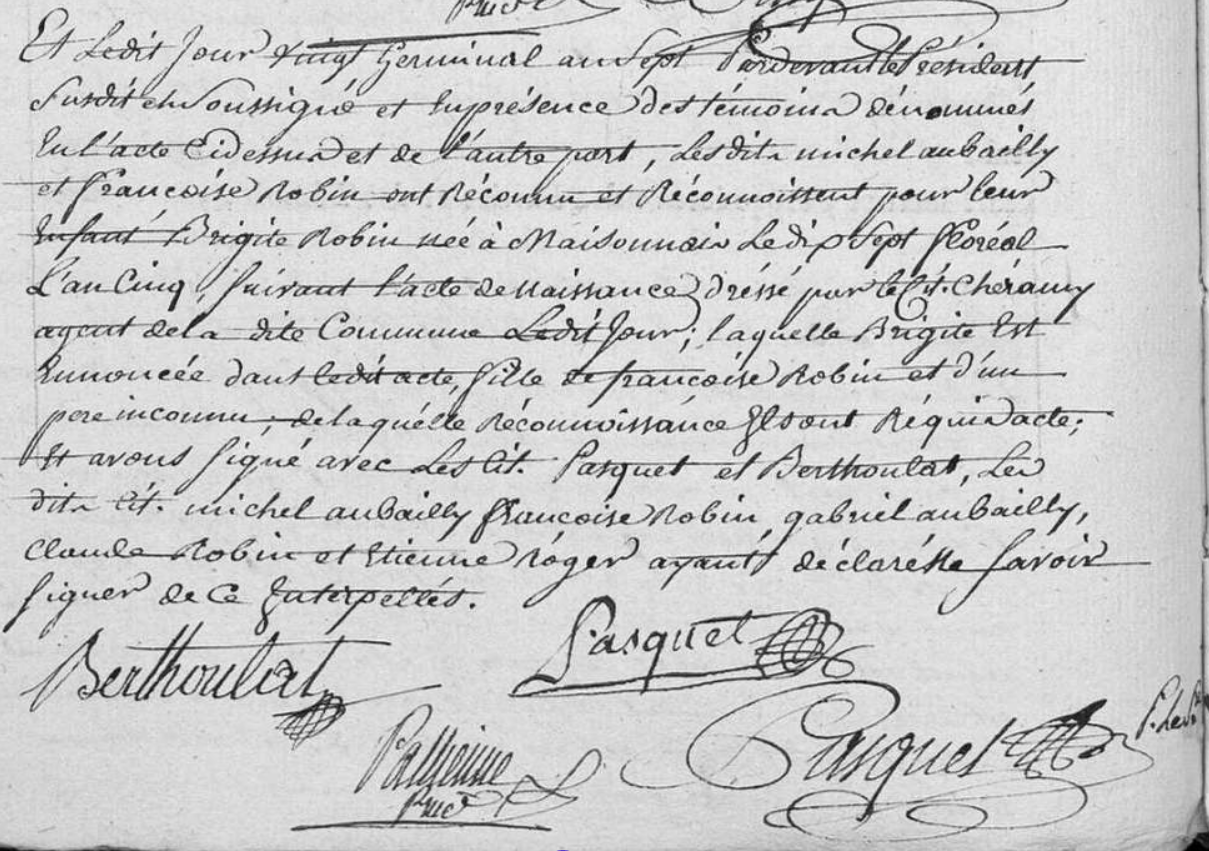 Et Ledit Jour vingt Germinal an Sept Pardevant le Président
Susdit et Soussigné et en présence des témoins dénommés
En l'acte Cidessus et de l'autre part, Lesdits michel aubailly
et françoise Robin ont Réconnu et Réconnoissent pour leur
Enfant Brigite Robin née à Maisonnais Le dix Sept floréal
L'an Cinq, suivant l'acte de naissance dréssé par le Cit. Chéramy
agent de la dite Commune Ledit Jour; laquelle Brigite Est
Ennoncée dans ledit acte, fille de françoise Robin et d'un
pere inconnu; de laquélle Réconnoissance Ils ont Réquis acte;
Et avons signé avec Les Cit. Pasquet et Berthoulat, Les
dits Cit. michel aubailly françoise Robin, gabriel aubailly,
Claude Robin et Etienne Roger ayant déclaré ne savoir
signer de Ce Interpellés.
Berthoulat
Pasquet
Pasquet